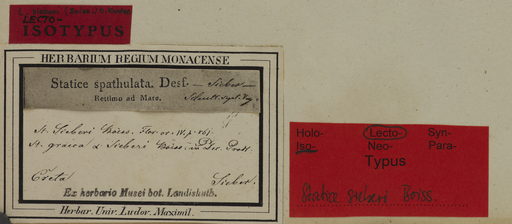 LECTO-
ISOTYPUS
HERBARIUM REGIUM MONACENSE
Statice spathulata. Desf. — Sieber —
Rettimo ad Mare. Schult. syst. veg.
St. Sieberi Boiss. Flor. or. IV. p. 861.
St. graeca α Sieberi Boiss. in Dec. Prodr.
Creta Sieber.
Ex herbario Musei bot. Landishuth.
Herbar. Univ. Ludov. Maximil.
Holo- Lecto- Syn-
Iso- Neo- Para-
Typus
Statice sieberi Boiss.